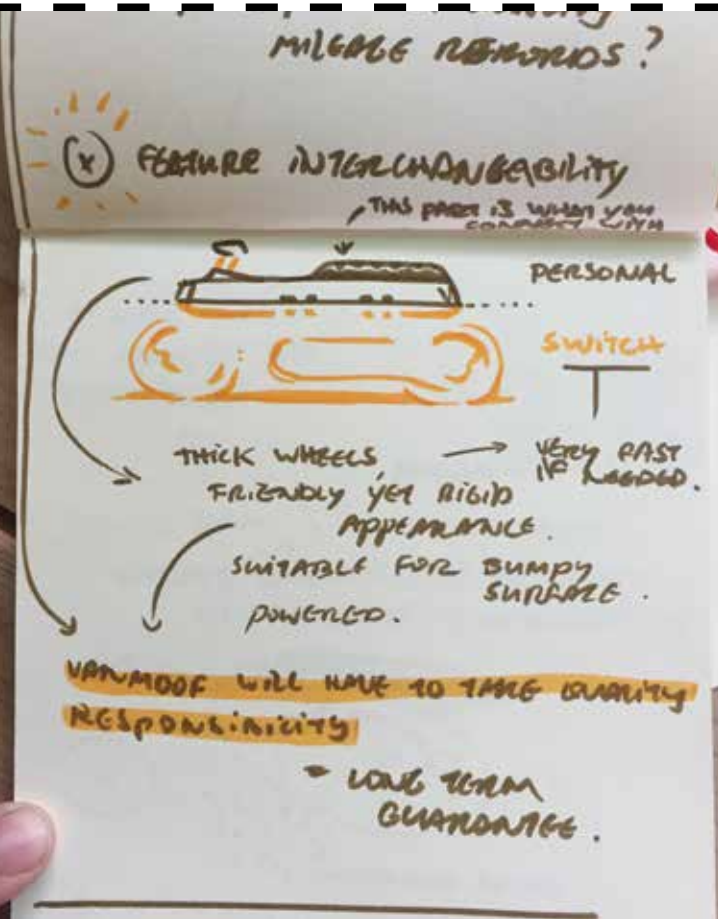 MILEAGE REWORDS?
(x) FEATURE INTERCHANGEABILITY
THIS PART IS WHAT YOU
CONNECT WITH
PERSONAL
SWITCH
THICK WHEELS, → VERY FAST
IF NEEDED.
FRIENDLY YET RIGID
APPEARANCE.
SUITABLE FOR BUMPY
SURFACE.
POWERED.
VANMOOF WILL HAVE TO TAKE QUALITY
RESPONSIBILITY
- LONG TERM
GUARANTEE.